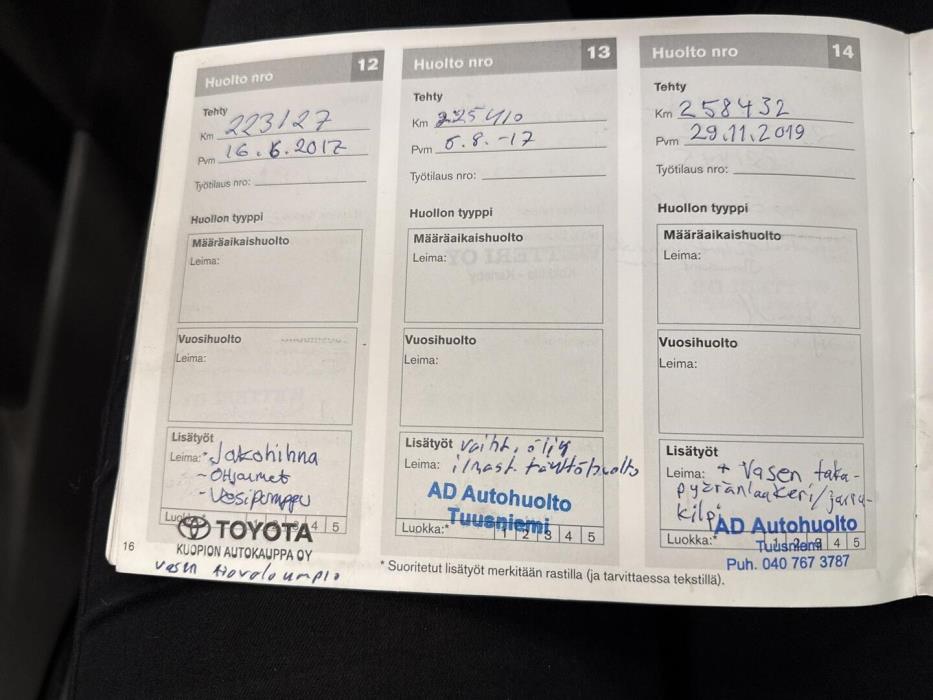 Huolto nro 12
Tehty
Km 223127
Pvm 16.6.2017
Työtilaus nro:
Huollon tyyppi
Määräaikaishuolto
Leima:
Vuosihuolto
Leima:
Lisätyöt
Leima:* Jakohihna
- Ohjaimet
- Vesipumppu
Luokka:* 1 2 3 4 5
TOYOTA
KUOPION AUTOKAUPPA OY
vasen
16
Huolto nro 13
Tehty
Km 225410
Pvm 5.8.-17
Työtilaus nro:
Huollon tyyppi
Määräaikaishuolto
Leima:
Vuosihuolto
Leima:
Lisätyöt vaiht. öljy
Leima: ilmast. täyttöhuolto
AD Autohuolto
Tuusniemi
Luokka:* 1 2 3 4 5
* Suoritetut lisätyöt merkitään rastilla (ja tarvittaessa tekstillä).
Huolto nro 14
Tehty
Km 258432
Pvm 29.11.2019
Työtilaus nro:
Huollon tyyppi
Määräaikaishuolto
Leima:
Vuosihuolto
Leima:
Lisätyöt
Leima: + Vasen taka-
pyöränlaakeri/jarru-
kilpi
AD Autohuolto
Luokka:* 1 2 3 4 5
Tuusniemi
Puh. 040 767 3787